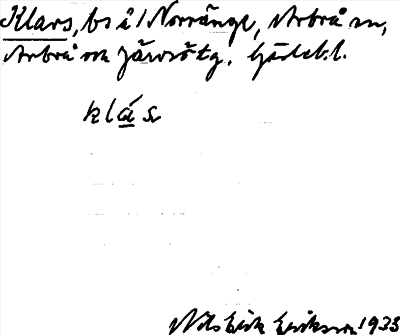 Klars, bs å 1 Norränge, Arbrå sn,
Arbrå och Järvsö tg. Gävleb. l.
klás
Nils Erik Eriksson 1933